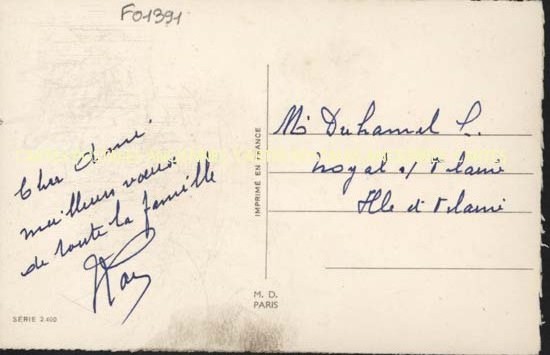 F01391
Cher Ami
meilleurs vœux
de toute la famille
Mr Duhamel L.
Noyal s/ Vilaine
Ille et Vilaine
IMPRIMÉ EN FRANCE
M. D.
PARIS
SÉRIE 2.400